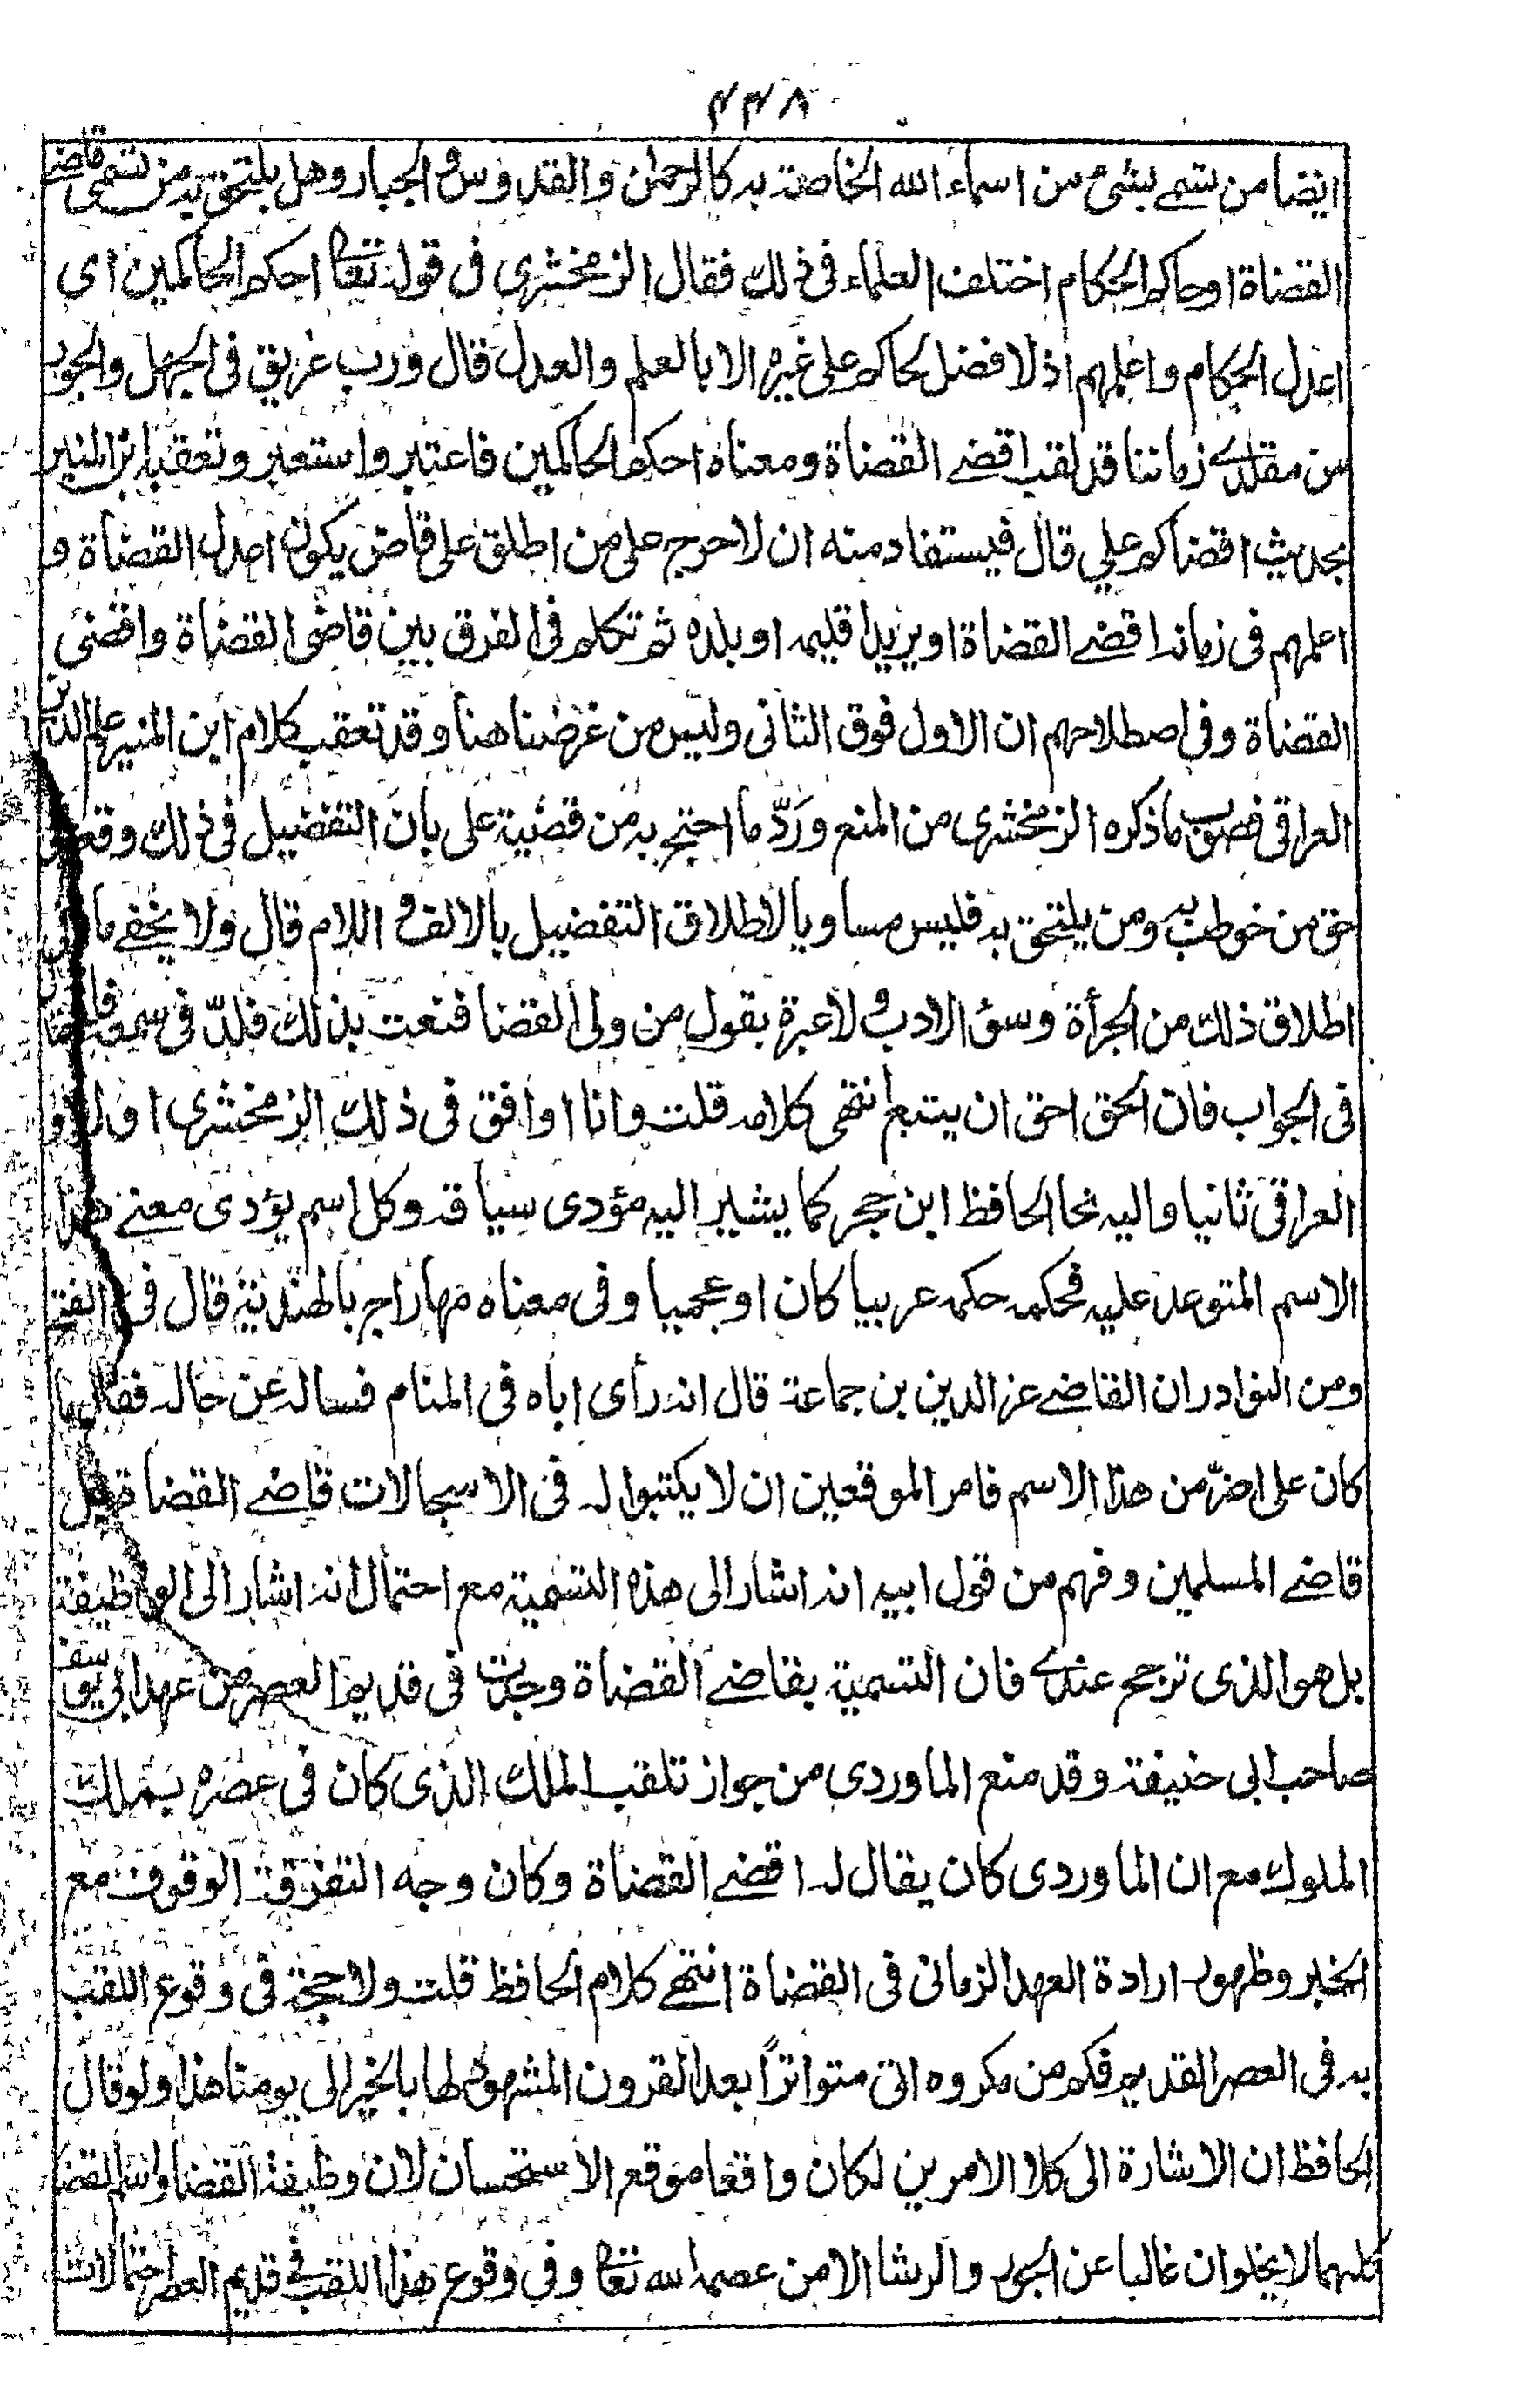 ٢٢٨
ايضا من تسمى بشئ من اسماء الله الخاصة به كالرحمن والقدوس والجبار وهل يلتحق به من تسمى قاضى
القضاة او حاكم الحكام اختلف العلماء فى ذلك فقال الزمخشرى فى قوله تعا احكم الحاكمين اى
اعدل الحكام واعلمهم اذ لا فضل لحاكم على غيره الا بالعلم والعدل قال ورب غريق فى الجهل والجور
من مقلدى زماننا قد لقب اقضى القضاة ومعناه احكم الحاكمين فاعتبر واستعبر وتعقبه ابن المنير
بحديث اقضاكم علي قال فيستفاد منه ان لا حرج على من اطلق على قاض يكون اعدل القضاة و
اعلمهم فى زمانه اقضى القضاة او يريد اقليمه او بلده ثم تكلم فى الفرق بين قاضى القضاة واقضى
القضاة وفى اصطلاحهم ان الاول فوق الثانى وليس من غرضنا هنا وقد تعقب كلام ابن المنير علم الدين
العراقى فصوب ما ذكره الزمخشرى من المنع وَرَدّ ما احتج به من قضية على بان التفضيل فى ذلك وقع فى
حق من خوطب به ومن يلتحق به فليس مساويا لاطلاق التفضيل بالالف و اللام قال ولا يخفى ما فى
اطلاق ذلك من الجرأة وسئ الادب ولا عبرة بقول من ولى القضا فنعت بذلك فلذّ فى سمعه فاحتال
فى الجواب فان الحق احق ان يتبع انتهى كلامه قلت وانا اوافق فى ذلك الزمخشرى اولا و
العراقى ثانيا واليه نحا الحافظ ابن حجر كما يشير اليه مؤدى سياقه وكل اسم يؤدى معنى هذا
الاسم المتوعد عليه فحكمه حكمه عربيا كان او عجميا وفى معناه مهاراجه بالهندية قال فى الفتح
ومن النوادر ان القاضى عز الدين بن جماعة قال انه رأى اباه فى المنام فساله عن حاله فقال ما
كان على اضرّ من هذا الاسم فامر الموقعين ان لا يكتبوا له فى الاسجالات قاضى القضاة بل
قاضى المسلمين وفهم من قول ابيه انه اشار الى هذه التسمية مع احتمال انه اشار الى الوظيفة
بل هو الذى ترجح عندى فان التسمية بقاضى القضاة وجدت فى قديم العصر من عهد ابى يوسف
صاحب ابى حنيفة وقد منع الماوردى من جواز تلقب الملك الذى كان فى عصره بملك
الملوك مع ان الماوردى كان يقال له اقضى القضاة وكان وجه التفرقة الوقوف مع
الخبر وظهور ارادة العهد الزمانى فى القضاة انتهى كلام الحافظ قلت ولا حجة فى وقوع اللقب
به فى العصر القديم فكم من مكروه اتى متواترًا بعد القرون المشهود لها بالخير الى يومنا هذا ولو قال
الحافظ ان الاشارة الى كلا الامرين لكان واقعا موقع الاستحسان لان وظيفة القضا القضا
كلهما لا يخلوان غالبا عن الجور والرشا الا من عصمه الله تعا وفى وقوع هذا اللقب فى قديم العصر احتمالات